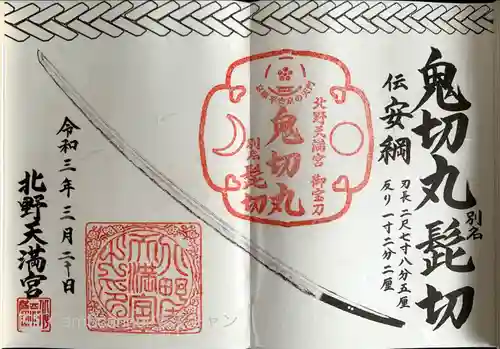 鬼切丸 別名 髭切
伝 安綱
刃長 二尺七寸八分五厘
反り 一寸二分二厘
北野天満宮 御宝刀
鬼切丸
別名 髭切
令和三年三月二十日
北野天満宮